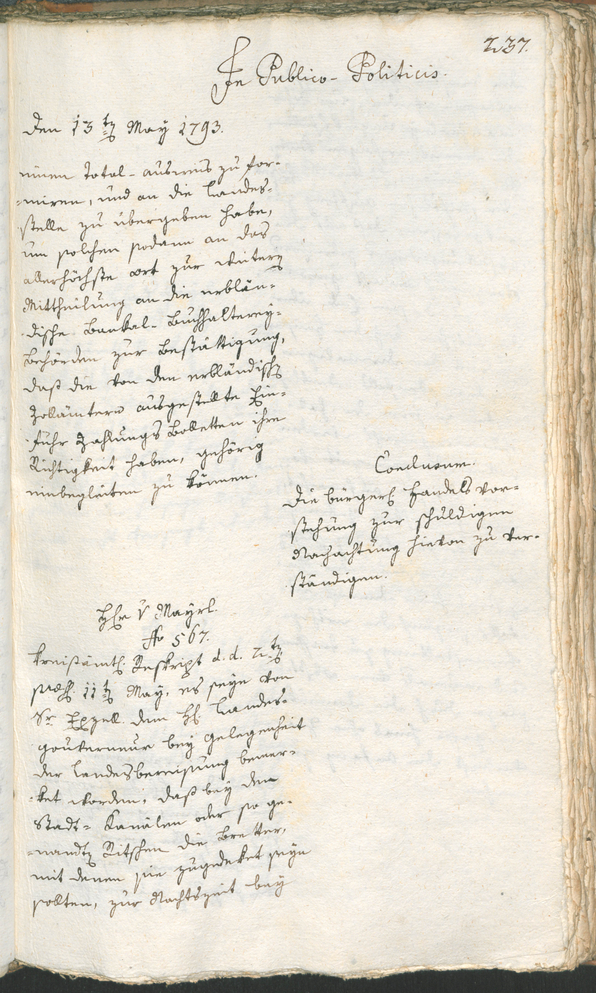 237.
In Publico-Politicis.
Den 13 tg May 1793.
einen total-ausweis zu for-
-miren, und an die Landes-
stelle zu übergeben habe,
um solchen sodann an das
allerhöchste ort zur weitern
Mittheilung an die erblän-
dische Bankal-Buchhalterey-
behörden zur bestättigung,
daß die von den erbländisch
Zollämtern ausgestellte Ein-
fuhr Zahlungs Bolletten ihre
Richtigkeit haben, gehörig
einbegleiten zu können.
Conclusum.
Die bürgerl Handels vor-
stehung zur schuldigen
Nachachtung hievon zu ver-
ständigen.
H v Mayrl.
No 567.
kreisämtl Reskript d. d. 2 tg
11 tg May. es seye von
Sr Exzell. dem H Landes-
gouverneur bey gelegenheit
der Landesbereisung bemer-
ket worden, daß bey den
Stadt-Kanälen oder so ge-
-nandte Ritschen die Bretter,
mit denen sie zugedeket seyn
sollten, zur Nachtszeit bey